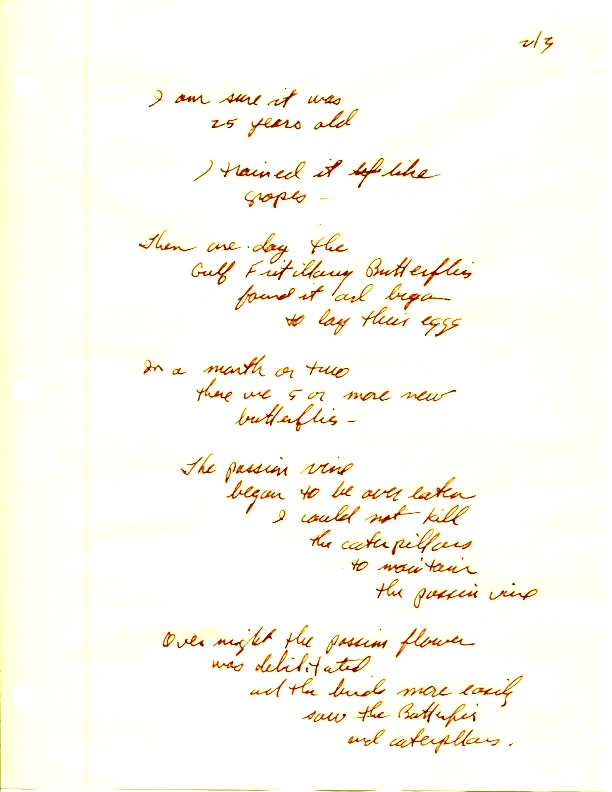 2/3
I am sure it was
25 years old
I trained it up like
grapes -
Then one day the
Gulf Fritillary Butterflies
found it and began
to lay their eggs
In a month or two
there were 5 or more new
butterflies -
The passion vine
began to be over eaten
I could not kill
the caterpillars
to maintain
the passion vine
Over night the passion flower
was debilitated
and the birds more easily
saw the Butterflies
and caterpillars.